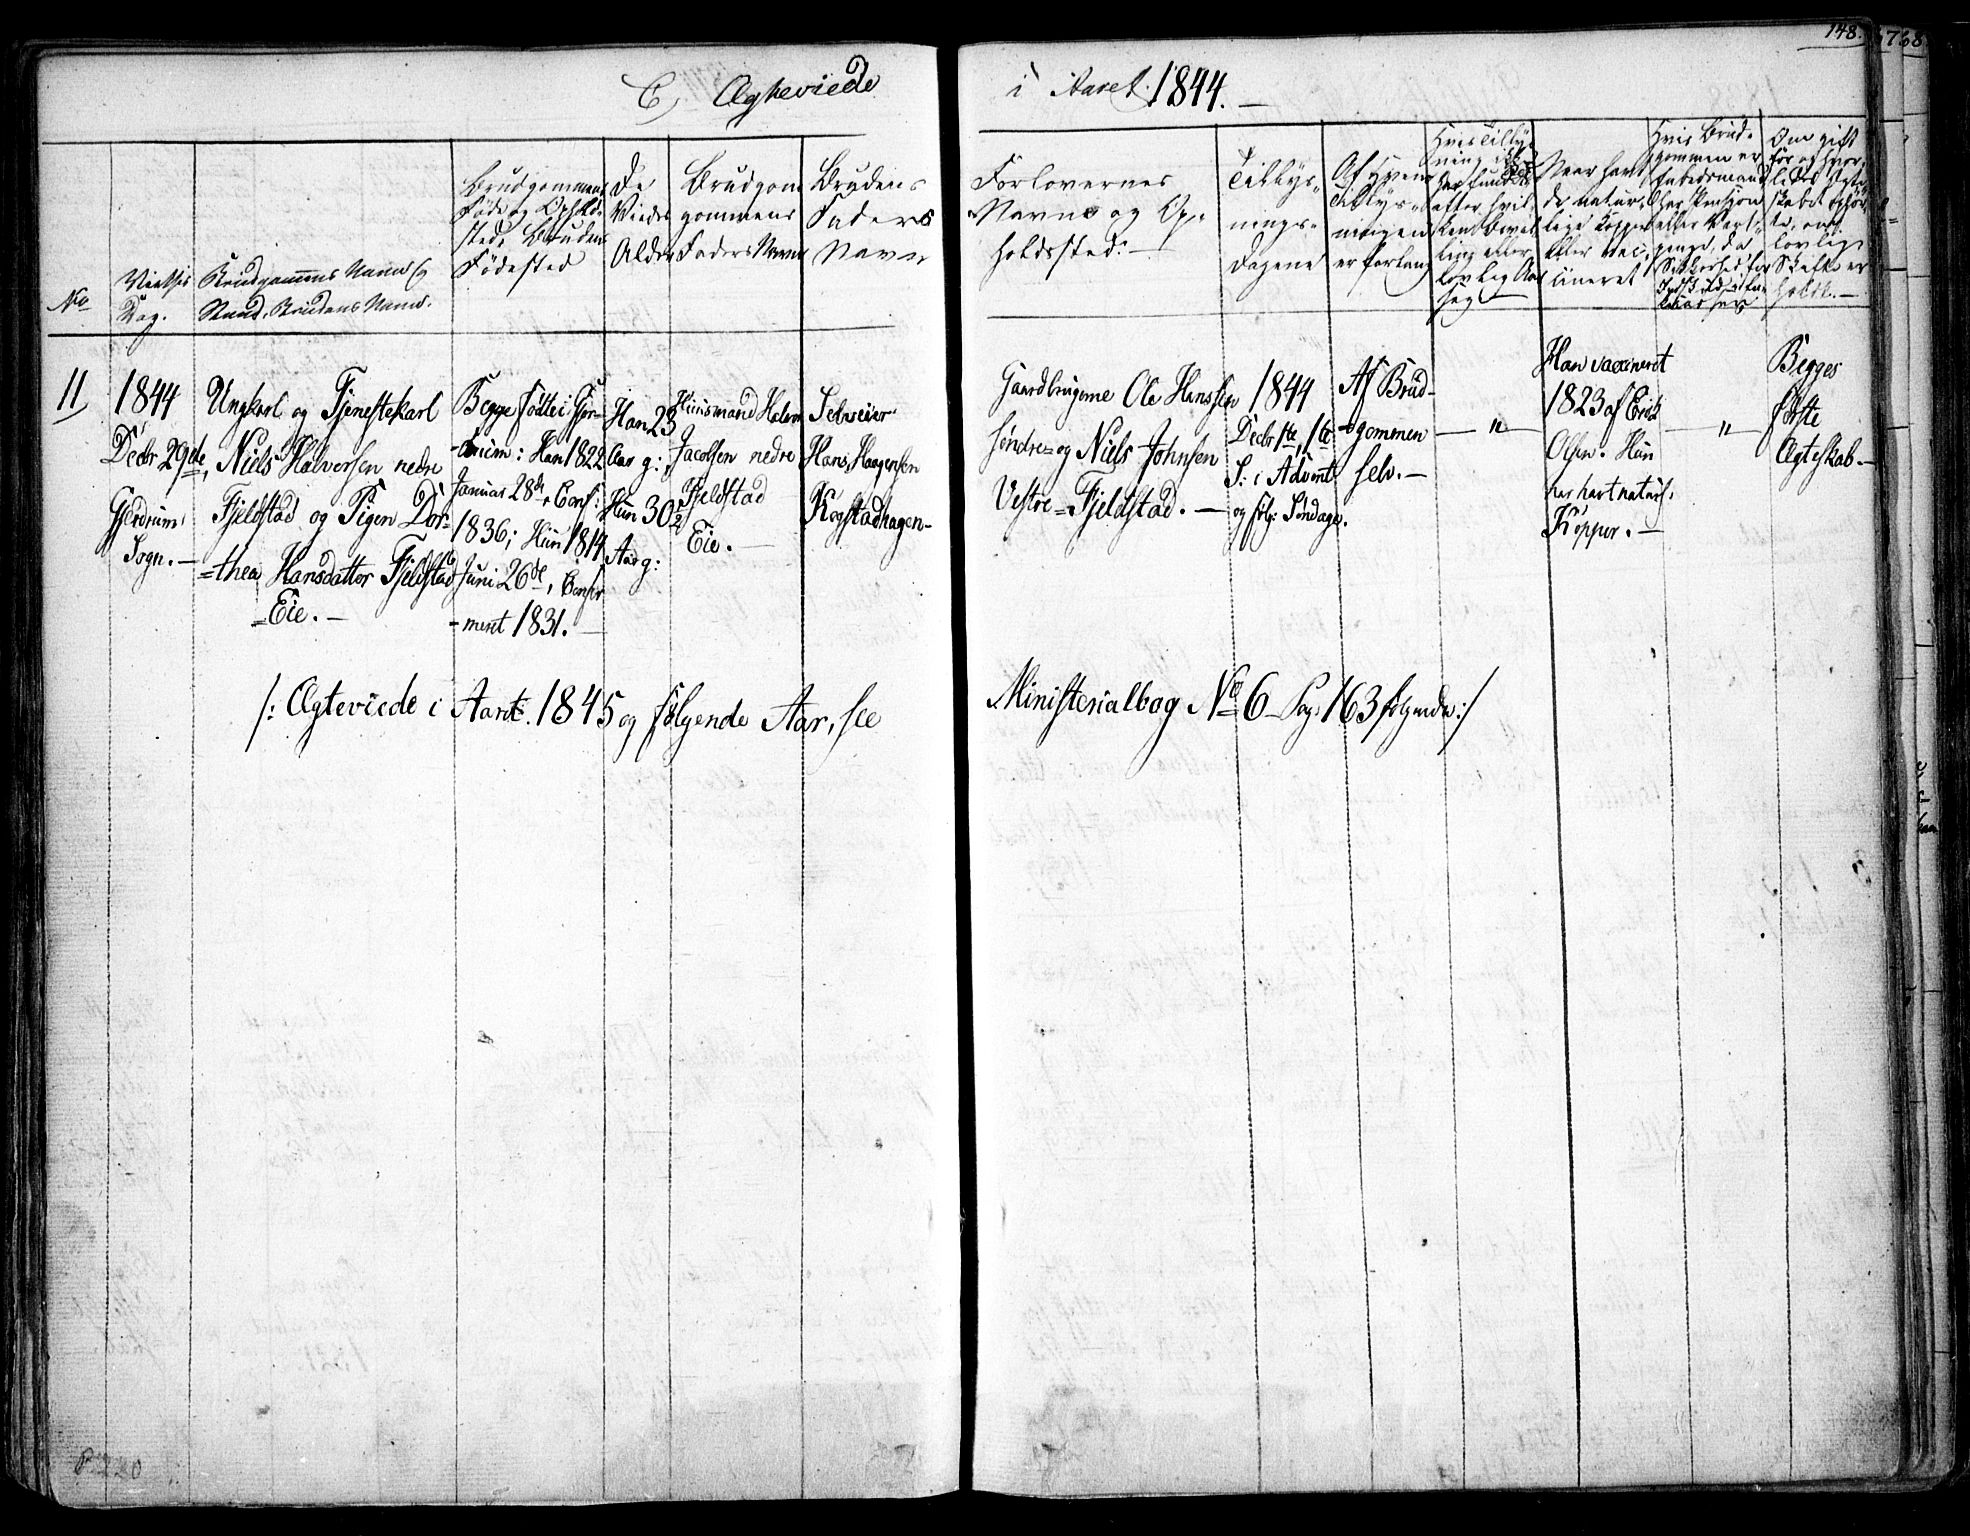 148.
C, Ægteviede
i Aaret 1844. —
No
Vielses
Dag.
Brudgommens Navn og
Stand. Brudens Navn.
Brudgommens
Føde og Opholds
sted, Brudens
Fødested
De
Viedes
Alder
Brudgom
gommens
Faders Navn
Brudens
Faders
Navn
Forlovernes
Navne og Op-
holdssted. —
Tillys-
nings-
Dagene
Af hvem
Tillys-
ningen
er forlang
Hvis Tilly
ning ikke
har fundet
efter hvil
ken Bevil
ling eller
lovlig
Naar havt
de natur-
lige Kopper
eller vac-
cineret
Hvis Brud-
gommen er
Embedsmand
har Pension
Sikkerhed for
Om gift
før og hvor-
ledes Egte-
skabet ophør-
te, om
lovlig
Skifte er
holdt. —
11
1844
Decbr 29de,
Gjerdrums
Sogn. —
Ungkarl og Tjenestekarl
Niels Halvorsen nedre
Fjeldstad og Pigen Dor-
=thea Hansdatter Fjeldstad
=Eie. —
Begge fødte i Gjer-
-drum: Han 1822
Januar 28de, Conf:
1836; Hun 1814
Juni 26de, Confir
-meret 1831. —
Han 23
Aar g:,
Hun 30½
Aar g:
Huusmand Halvor
Jacobsen nedre
Fjeldstad
Eie. —
Selveier
Hans Haagensen
Kogstadhagen—
Gaardbrugerne Ole Hanssen
søndre= og Niels Johnsen
Vestre=Fjeldstad. —
1844
Decbr 1ste, 1ste
S: i Advent
og følg: Søndage.
Af Brud-
-gommen
selv. —
— " —
Han vaccineret
1823 af Erik
Olsen. Hun
har havt naturl:
Kopper. —
— " —
Begges
første
Ægteskab. —
/: Ægteviede i Aaret 1845 og følgende Aar, see
Ministerialbog No 6 – Pag: 163 følgende :/